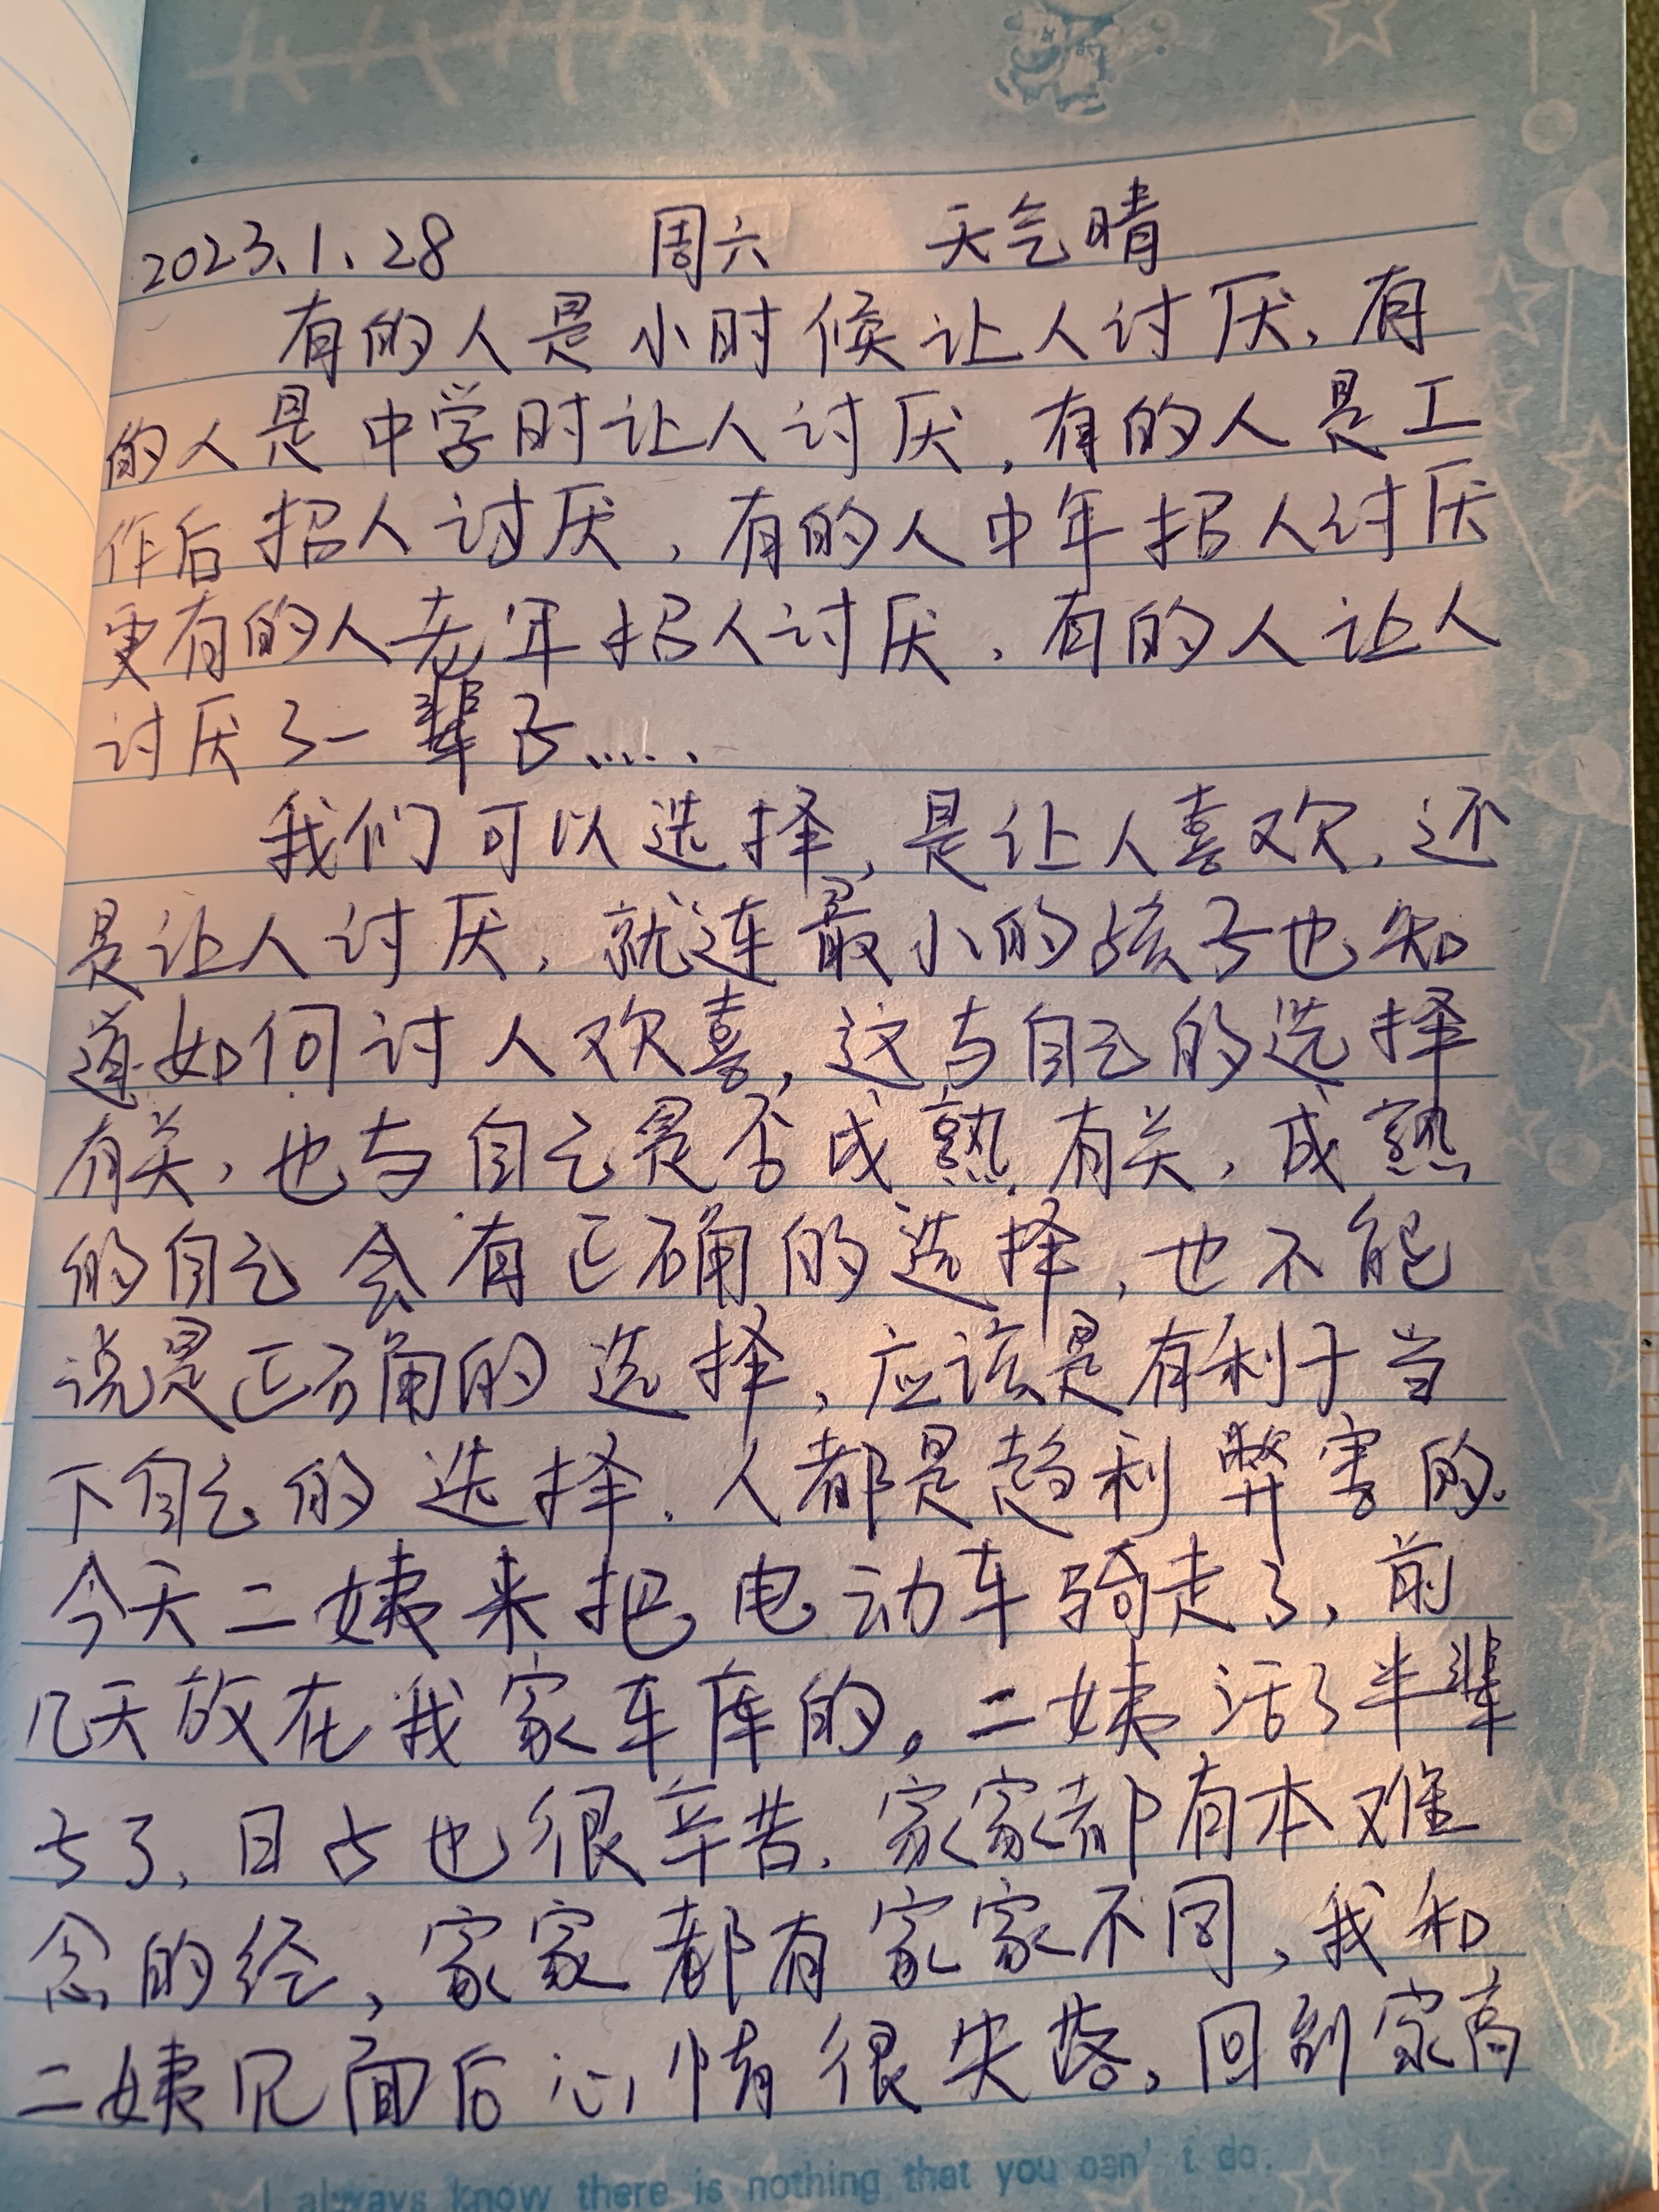 2023.1.28 周六 天气晴
有的人是小时候让人讨厌,有
的人是中学时让人讨厌,有的人是工
作后招人讨厌,有的人中年招人讨厌
更有的人老年招人讨厌,有的人让人
讨厌了一辈子.....
我们可以选择,是让人喜欢,还
是让人讨厌,就连最小的孩子也知
道如何讨人欢喜,这与自己的选择
有关,也与自己是否成熟有关,成熟
的自己会有正确的选择,也不能
说是正确的选择,应该是有利于当
下自己的选择.人都是趋利弊害的.
今天二姨来把电动车骑走了,前
几天放在我家车库的。二姨活了半辈
子了,日子也很辛苦.家家都有本难
念的经,家家都有家家不同,我和
二姨见面后心情很失落,回到家高
I always know there is nothing that you can't do.